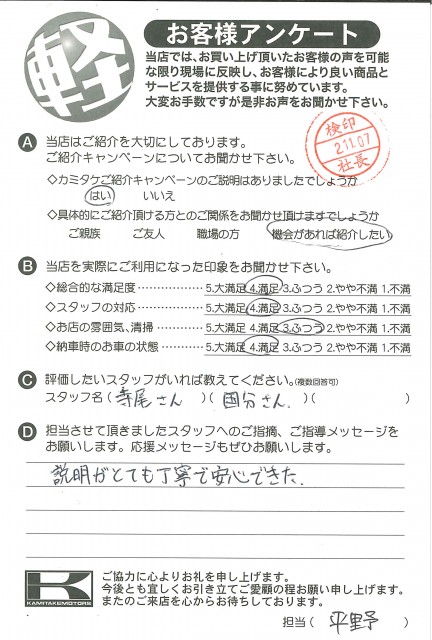 軽
お客様アンケート
当店では、お買い上げ頂いたお客様の声を可能
な限り現場に反映し、お客様により良い商品と
サービスを提供する事に努めています。
大変お手数ですが是非お声をお聞かせ下さい。
検印
211.07
社長
A 当店はご紹介を大切にしております。
ご紹介キャンペーンについてお聞かせ下さい。
◇カミタケご紹介キャンペーンのご説明はありましたでしょうか
はい いいえ
◇具体的にご紹介頂ける方とのご関係をお聞かせ頂けますでしょうか
ご親族 ご友人 職場の方 機会があれば紹介したい
B 当店を実際にご利用になった印象をお聞かせ下さい。
◇総合的な満足度……………… 5.大満足 4.満足 3.ふつう 2.やや不満 1.不満
◇スタッフの対応……………… 5.大満足 4.満足 3.ふつう 2.やや不満 1.不満
◇お店の雰囲気、清掃………… 5.大満足 4.満足 3.ふつう 2.やや不満 1.不満
◇納車時のお車の状態………… 5.大満足 4.満足 3.ふつう 2.やや不満 1.不満
C 評価したいスタッフがいれば教えてください。(複数回答可)
スタッフ名( 寺尾さん )( 国分さん. )( )
D 担当させて頂きましたスタッフへのご指摘、ご指導メッセージを
お願いします。応援メッセージもぜひお願いします。
説明がとても丁寧で安心できた.
K
KAMITAKEMOTORS
ご協力に心よりお礼を申し上げます。
今後とも宜しくお引き立てご愛顧の程お願い申し上げます。
またのご来店を心からお待ちしております。
担当( 平野 )